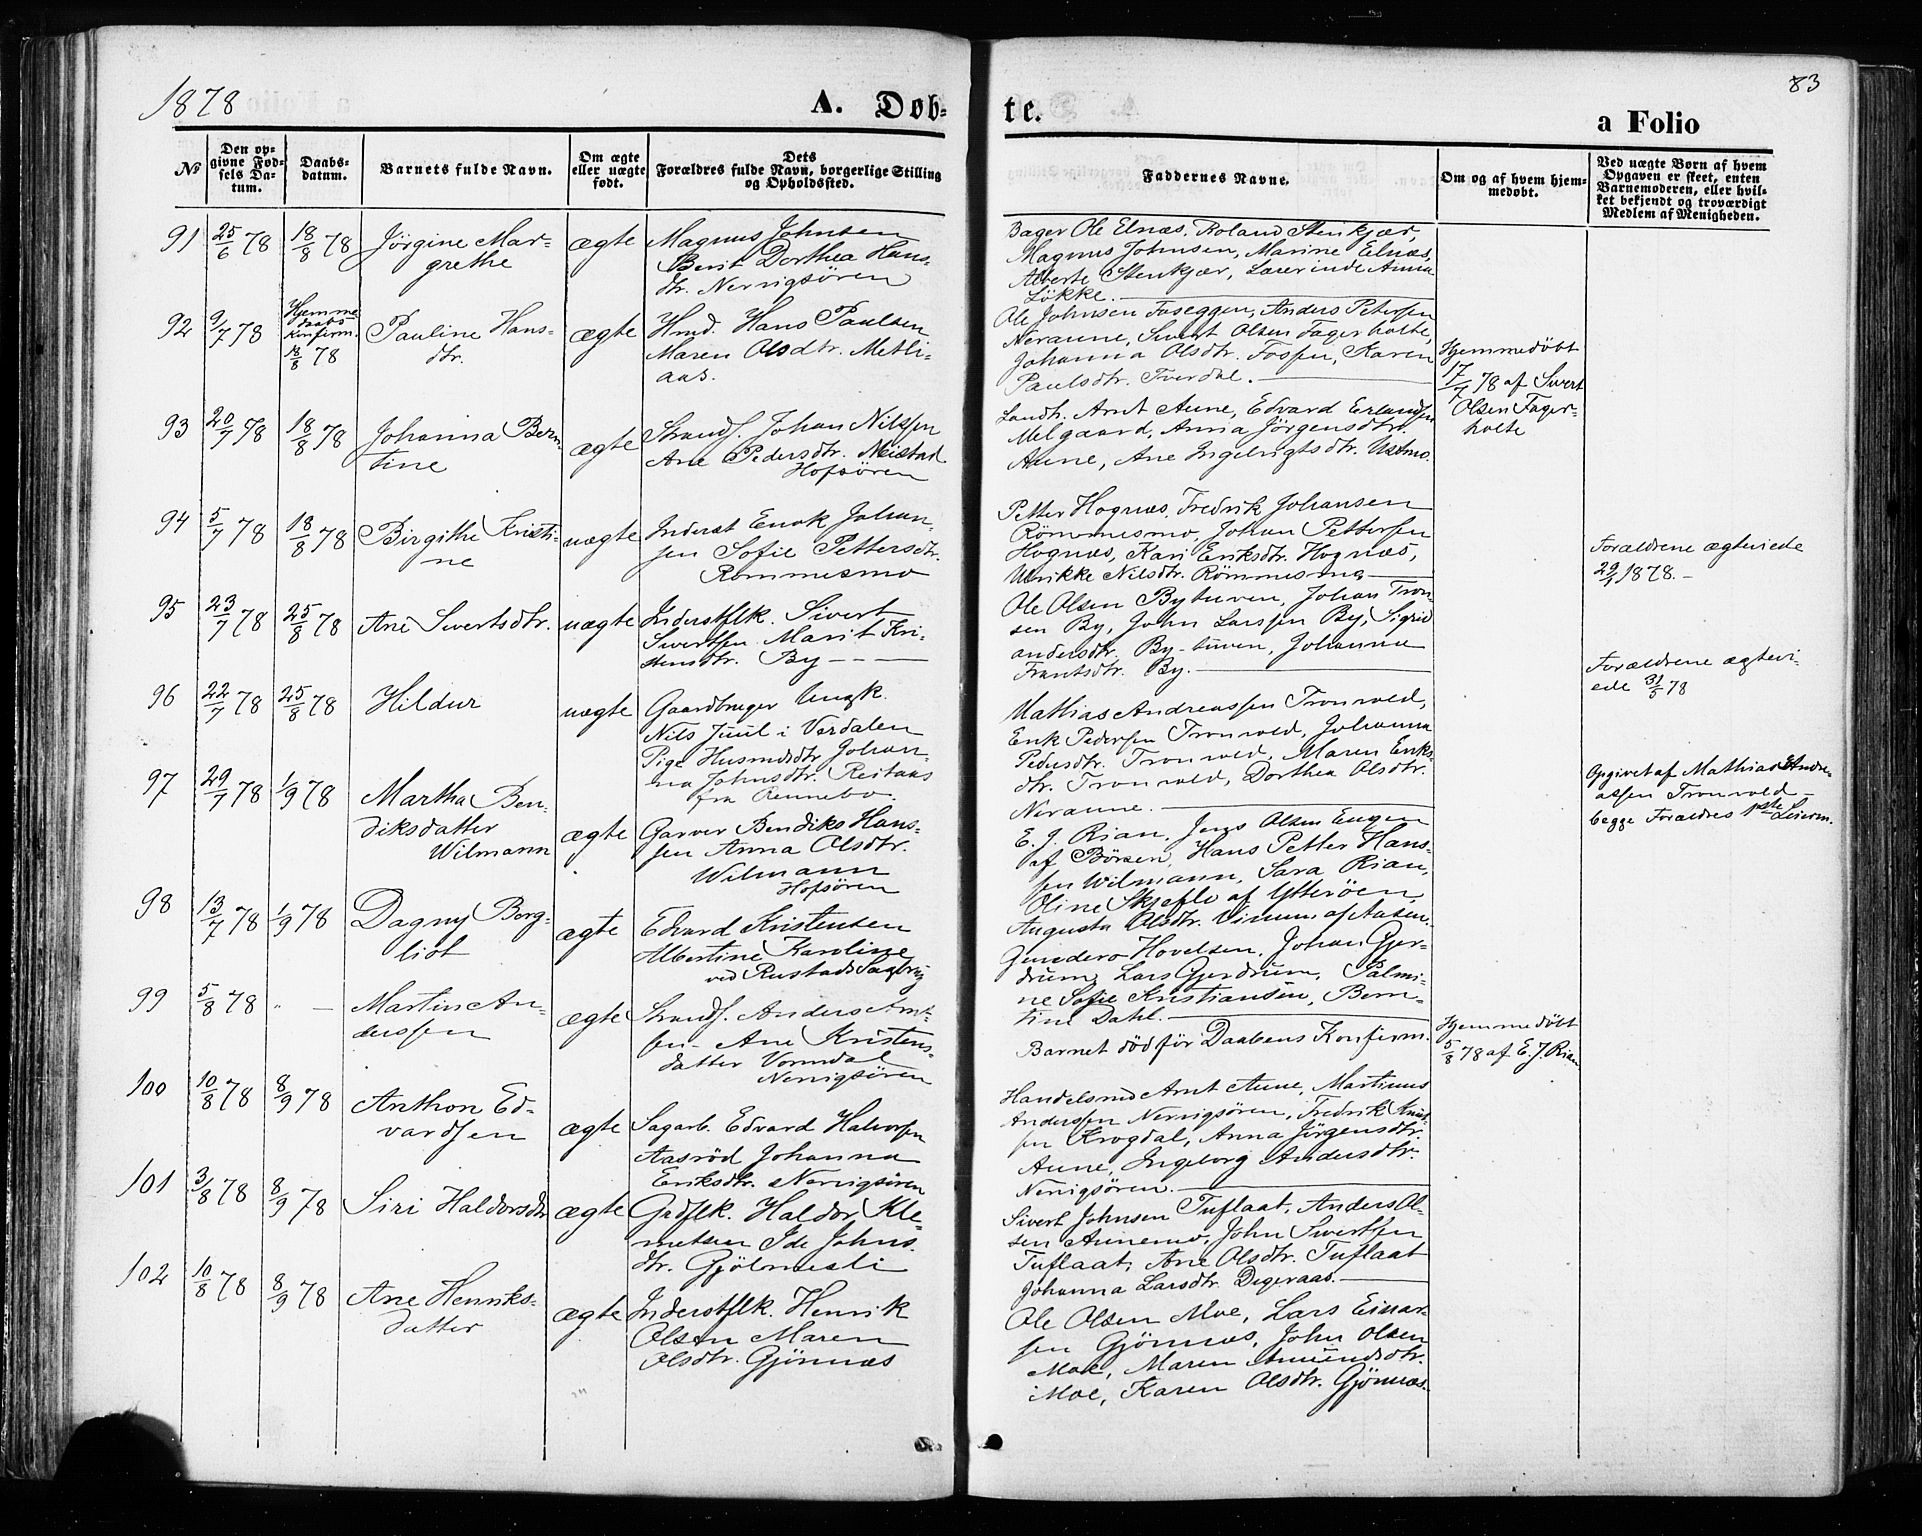 1878
A. Døb-
te.
83
a Folio
№
Den op-
givne Fød-
sels Da-
tum.
Daabs-
datum.
Barnets fulde Navn.
Om ægte
eller uægte
født.
Dets
Forældres fulde Navn, borgerlige Stilling
og Opholdssted.
Faddernes Navne.
Om og af hvem hjem-
medøbt.
Ved uægte Børn af hvem
Opgaven er skeet, enten
Barnemoderen, eller hvil-
ket bekjendt og troværdigt
Medlem af Menigheden.
91 25/6 78 18/8 78
Jörgine Mar-
grethe
ægte
Magnus Johnsen
Berit Dorthea Hans-
dtr. Nervigsören
Bager Ole Elnæs, Roland Stenkjær,
Magnus Johnsen, Marine Elnæs,
Alberte Stenkjær, Lærerinde Anna
Løkke.
92 9/7 78
Hjemme
daabs
Konfirm.
18/8 78
Pauline Hans-
dtr.
ægte
Hmd. Hans Paulsen
Maren Olsdtr. Metli-
aas.
Ole Johnsen Foseggen, Anders Petersen
Neraune, Sivert Olsen Fagerholte,
Johanna Olsdtr. Fossen, Karen
Paulsdtr. Tverdal.
Hjemmedöbt
17/7 78 af Sivert
Olsen Fager-
holte
93 20/7 78 18/8 78
Johanna Bern-
tine
ægte
Strands. Johan Nilssen
Ane Pedersdtr. Neistad
Hofsören
Landh. Arnt Aune, Edvard Erlandsen
Melgaard, Anna Jörgensdtr.
Aune, Ane Ingebrigtsdtr. Ustmo.
94 5/7 78 18/8 78
Birgithe Kristi-
ne
uægte
Inderst Enok Johan-
sen Sofie Pettersdtr.
Römmesmo
Petter Hognæs, Fredrik Johansen
Römmesmo, Johan Pettersen
Hognæs, Kari Eriksdtr. Hognæs,
Ulrikke Nilsdtr. Römmesmo
Forældrene ægteviede
29/ 1878.-
95 23/7 78 25/8 78
Ane Sivertsdtr.
uægte
Inderstflk. Sivert
Sivertsen Marit Kri-
stensdtr. By
Ole Olsen Bytuven, Johan Tron-
sen By, John Larssen By, Sigrid
andersdtr. By-tuven, Johanna
Frantsdtr. By.
Forældrene ægtevi-
ede 31/5 78
96 22/7 78 25/8 78
Hildur
uægte
Gaardbruger Ungk.
Nils Juul i Verdalen
Pige Husmdsdtr Johan-
na Johnsdtr. Reitaas
fra Rennebo.
Mathias Andreassen Tronvold,
Erik Pedersen Tronvold, Johanna
Pedersdtr. Tronvold, Maren Eriks-
dtr. Tronvold, Dorthea Olsdtr.
Neraune.
Opgivet af Mathias Andre-
assen Tronvold -
begge Forældres 1ste Leierm.
97 29/7 78 1/9 78
Martha Ben-
diksdatter
Wilmann
ægte
Garver Bendiks Hans-
sen Anna Olsdtr.
Wilmann
Hofsören
E. J. Rian, Jens Olsen Eugen
af Börsen, Hans Petter Hans-
sen Wilmann, Sara Rian,
Oline Skjefle af Ytteröen,
Augusta Olsdtr. Vinum af Aasen.
98 13/7 78 1/9 78
Dagny Berg-
liot
ægte
Edvard Kristensen
Albertine Karoline
ved Rustads Sagbrug
Hovelsen, Johan Gjer-
drum, Lars Gjerdrum, Palmi-
ne Sofie Kristiansen, Bern-
tine Dahl.
99 5/8 78 " -
Martin An-
derssen
ægte
Strands. Anders Arnt-
sen - Ane Kristens-
datter Vormdal
Nervigsören
Barnet död för Daabens Konfirm.
Hjemmedöbt
5/8 78 af E. J. Rian
100 10/8 78 8/9 78
Anthon Ed-
vardsen
ægte
Sagarb. Edvard Halvorsen
Aasröd Johanna
Eriksdtr. Nervigsören
Handelsmd Arnt Aune, Martinus
Anderssen Nervigsören, Fredrik Knut-
sen Krogdal, Anna Jörgensdtr.
Aune, Ingeborg Andersdtr.
Nervigsören.
101 3/8 78 8/9 78
Siri Haldorsdtr
ægte
Grdflk. Haldor Kle-
metsen Ide Johns-
dtr. Gjölmesli
Sivert Johnsen Tuflaat, Anders Ol-
sen Aunemo, John Sivertsen
Tuflaat, Ane Olsdtr. Tuflaat
Johanna Larsdtr. Digeraas.
102 10/8 78 8/9 78
Ane Henriks-
datter
ægte
Inderstflk. Henrik
Olsen Maren
Olsdtr. Gjönnæs
Ole Olsen Moe, Lars Einar-
sen Gjönnæs, John Olsen
Moe, Maren Amundsdtr.
Moe, Karen Olsdtr. Gjönnæs.